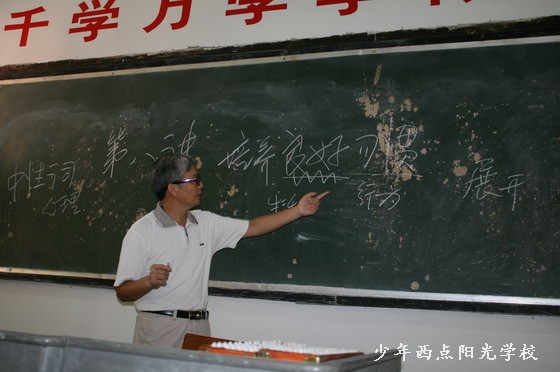 千学万学学
第八 培养良好习惯
中性词
心理
行为
展开
少年西点阳光学校